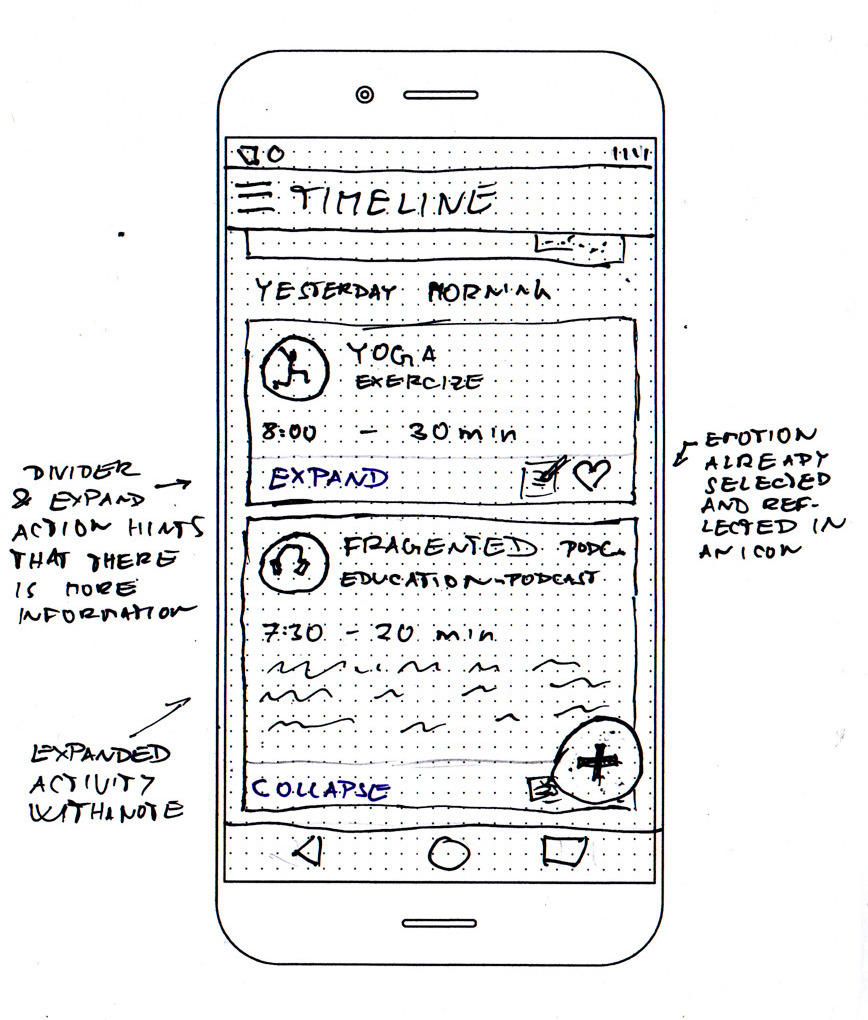 TIMELINE
YESTERDAY MORNING
YOGA
EXERCIZE
8:00 - 30 min
EXPAND
FRAGENTED PODC
EDUCATION-PODCAST
7:30 - 20 min
COLLAPSE
DIVIDER
& EXPAND
ACTION HINTS
THAT THERE
IS MORE
INFORMATION
EXPANDED
ACTIVITY
WITH A NOTE
EMOTION
ALREADY
SELECTED
AND REF-
LECTED IN
AN ICON